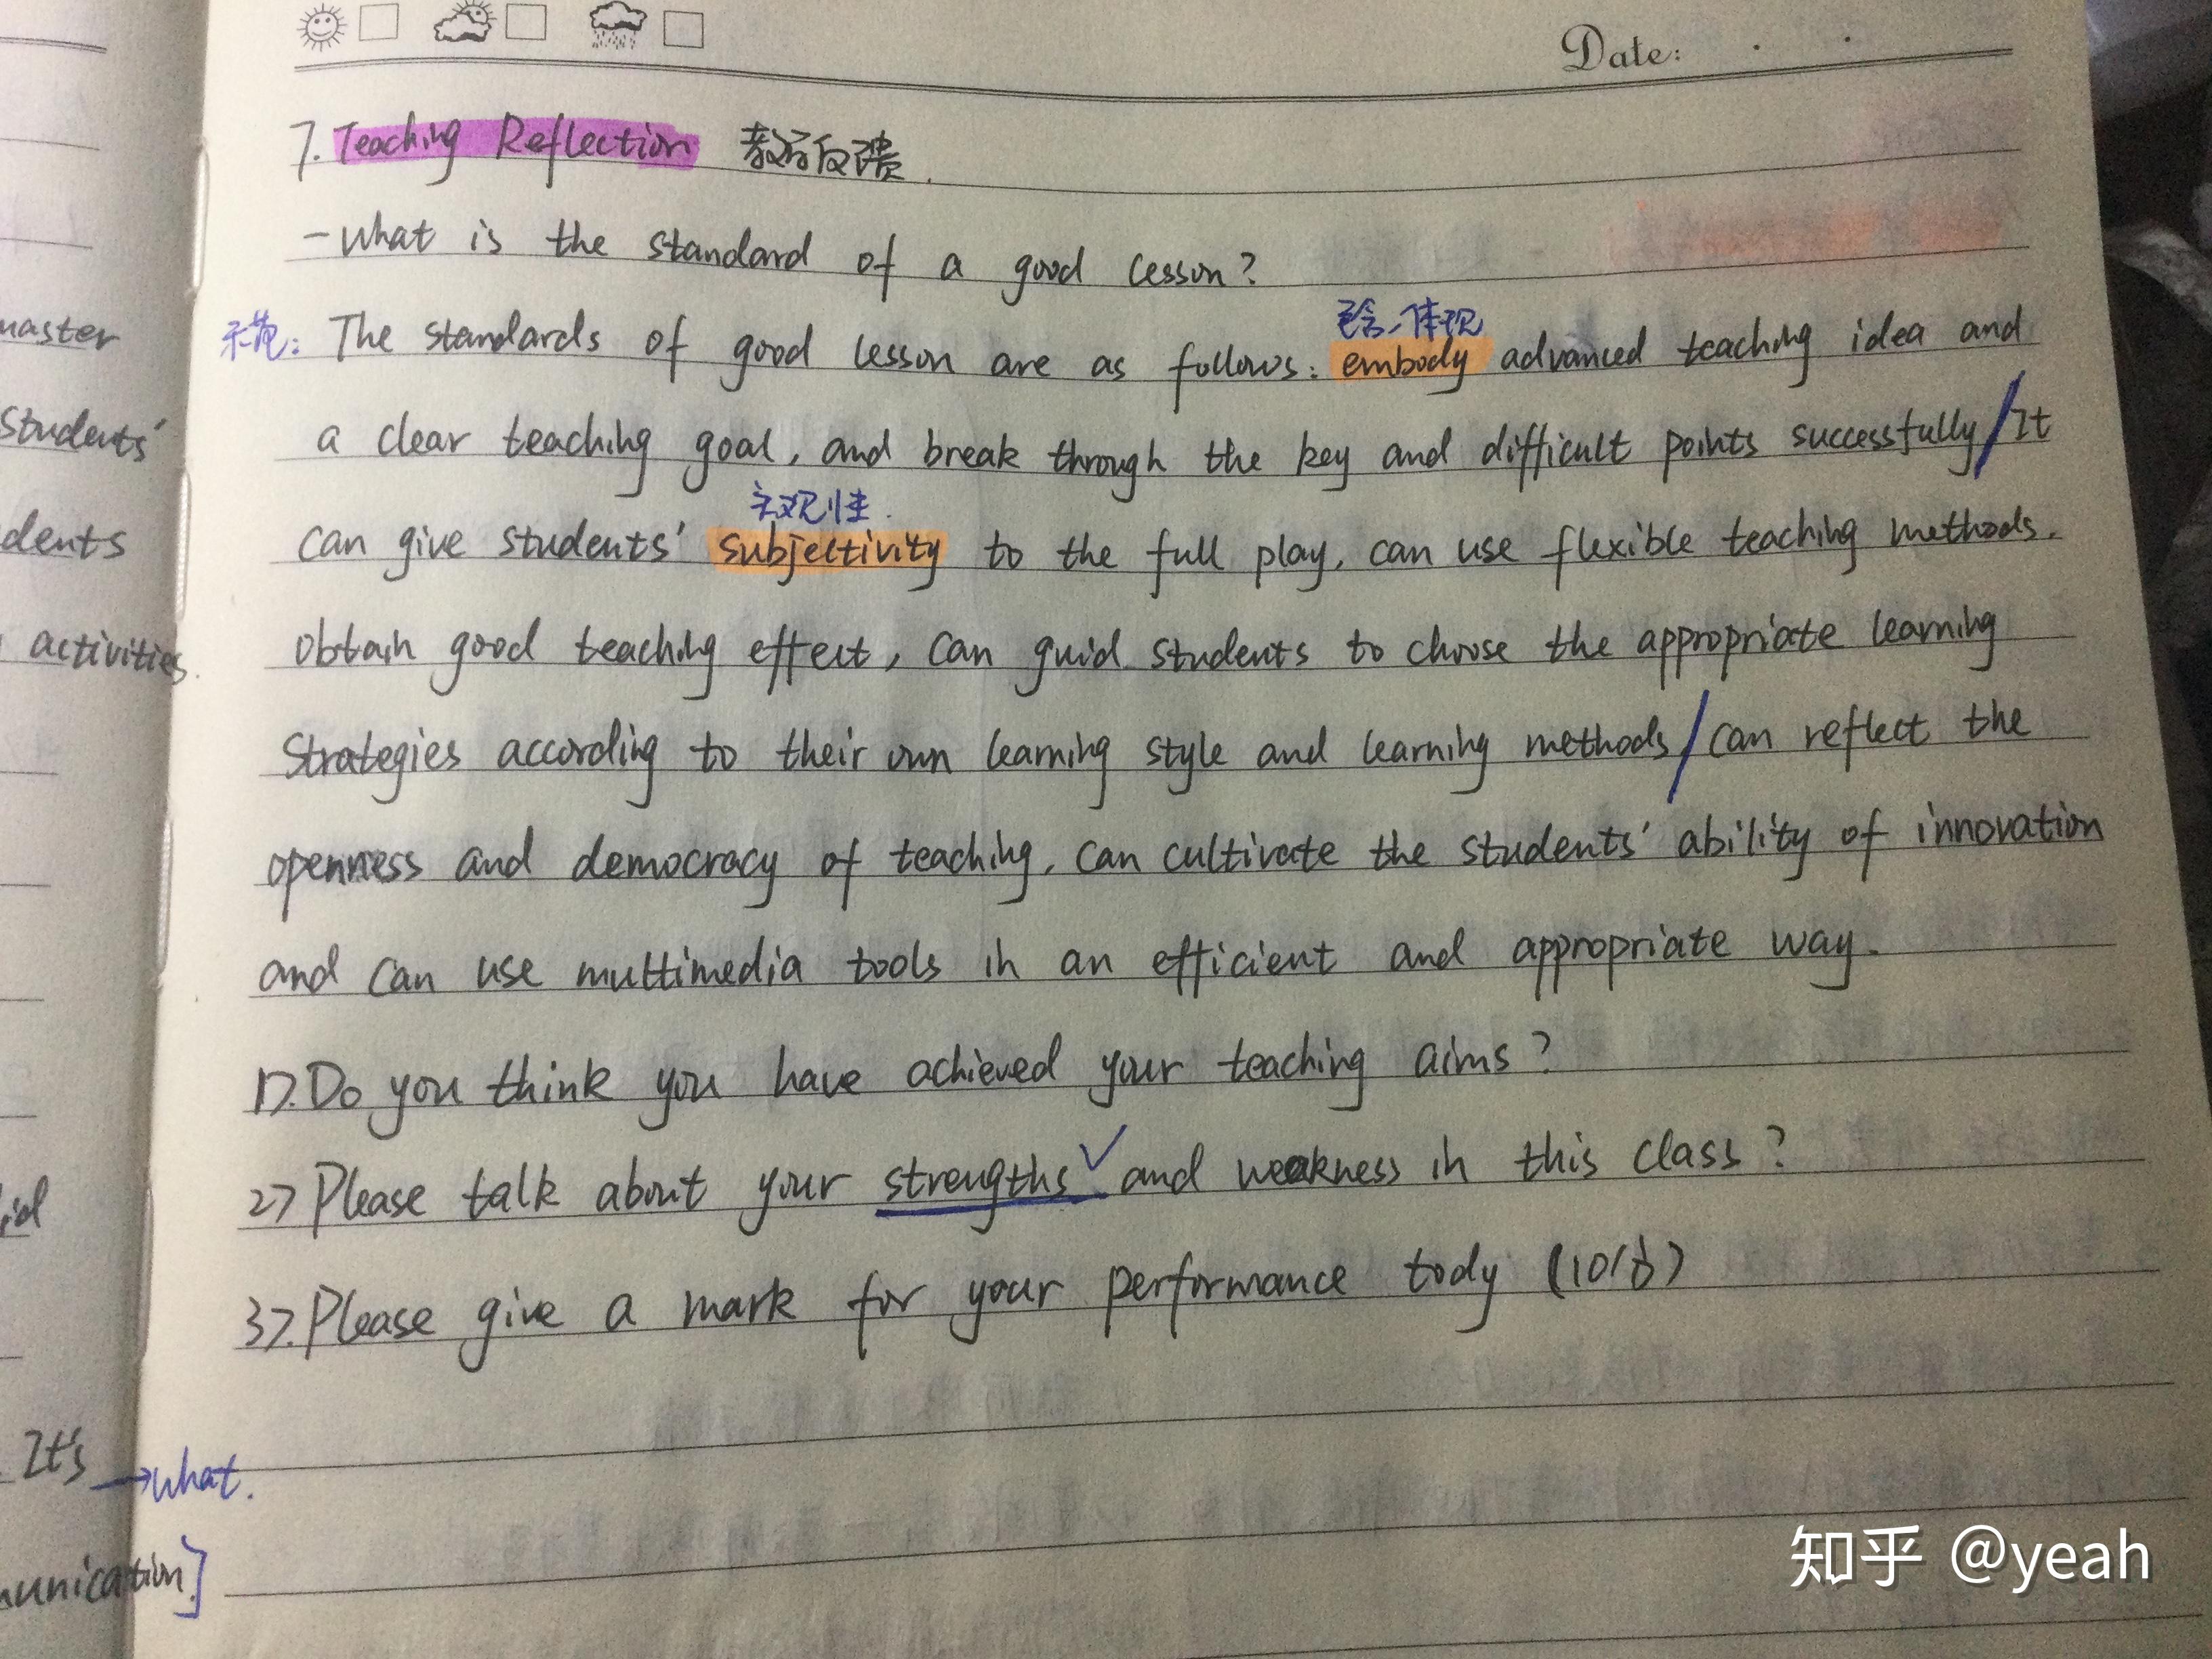 Date:
7. Teaching Reflection 教学反馈.
- What is the standard of a good lesson?
包含、体现
示范: The standards of good lesson are as follows: embody advanced teaching idea and
a clear teaching goal, and break through the key and difficult points successfully/It
主观性.
can give students' subjectivity to the full play, can use flexible teaching methods.
obtain good teaching effect, can guid students to choose the appropriate learning
strategies according to their own learning style and learning methods/can reflect the
openness and democracy of teaching, can cultivate the students' ability of innovation
and can use multimedia tools in an efficient and appropriate way.
1>.Do you think you have achieved your teaching aims?
2> Please talk about your strengths and weakness in this class?
3>.Please give a mark for your performance tody (10分)
master
students'
activities.
It's → what.
知乎 @yeah